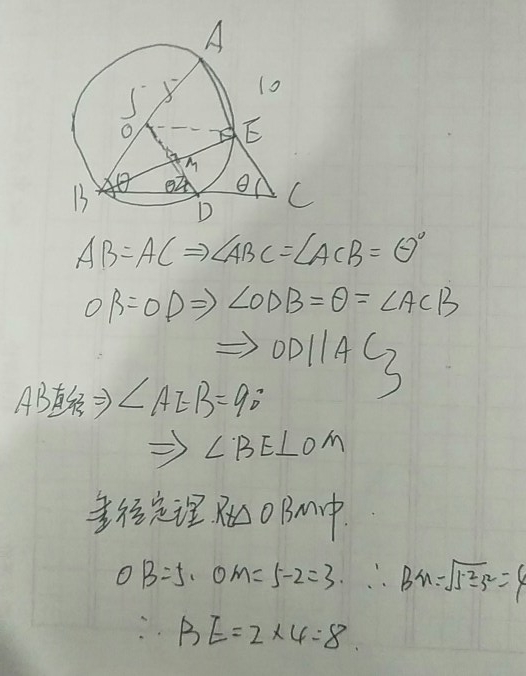 A
5 5 10
O E
M
B θ θ θ C
D
AB=AC⇒∠ABC=∠ACB=θ°
OB=OD⇒∠ODB=θ=∠ACB
⇒OD∥AC
AB直径⇒∠AEB=90°
⇒∠BE⊥OM
垂径定理.Rt△OBM中.
OB=5. OM=5-2=3. ∴BM=√5²-3²=4
∴BE=2×4=8.